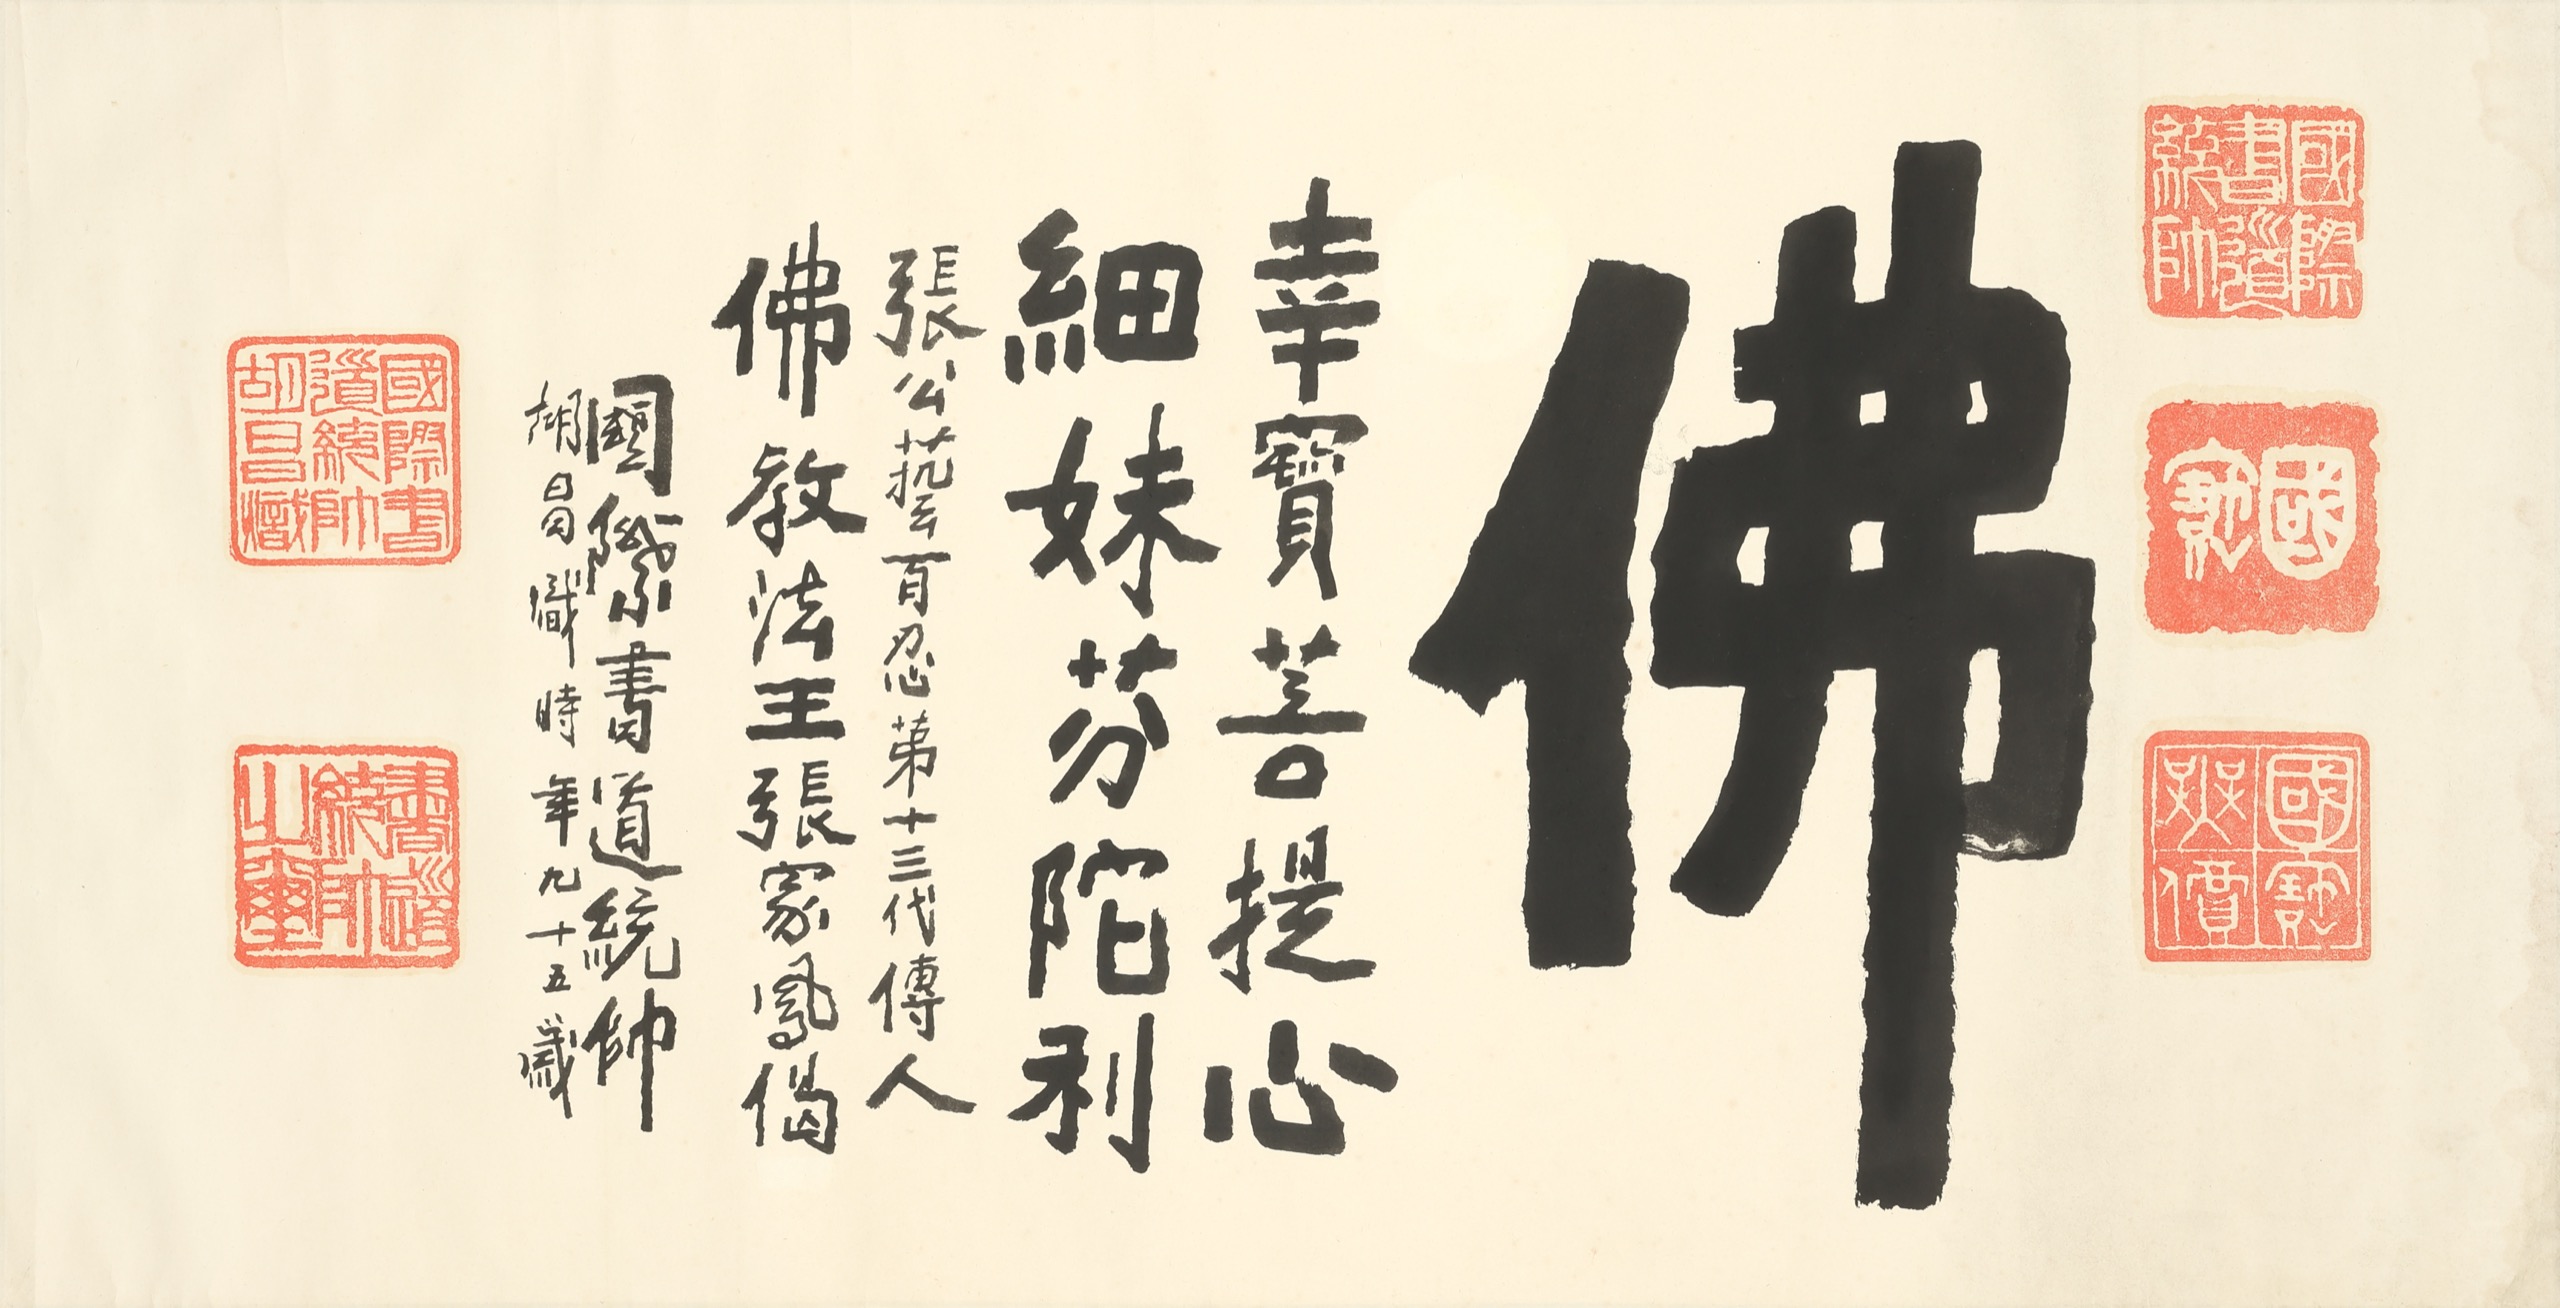 國際書道統帥
國寶
國寶無價
佛
幸寶菩提心
細妹芬陀利
張公藝百忍第十三代傳人
佛教法王張家鳳偈
國際書道統帥
胡昌熾時年九十五歲
國際書道統帥胡昌熾
書道統帥之璽